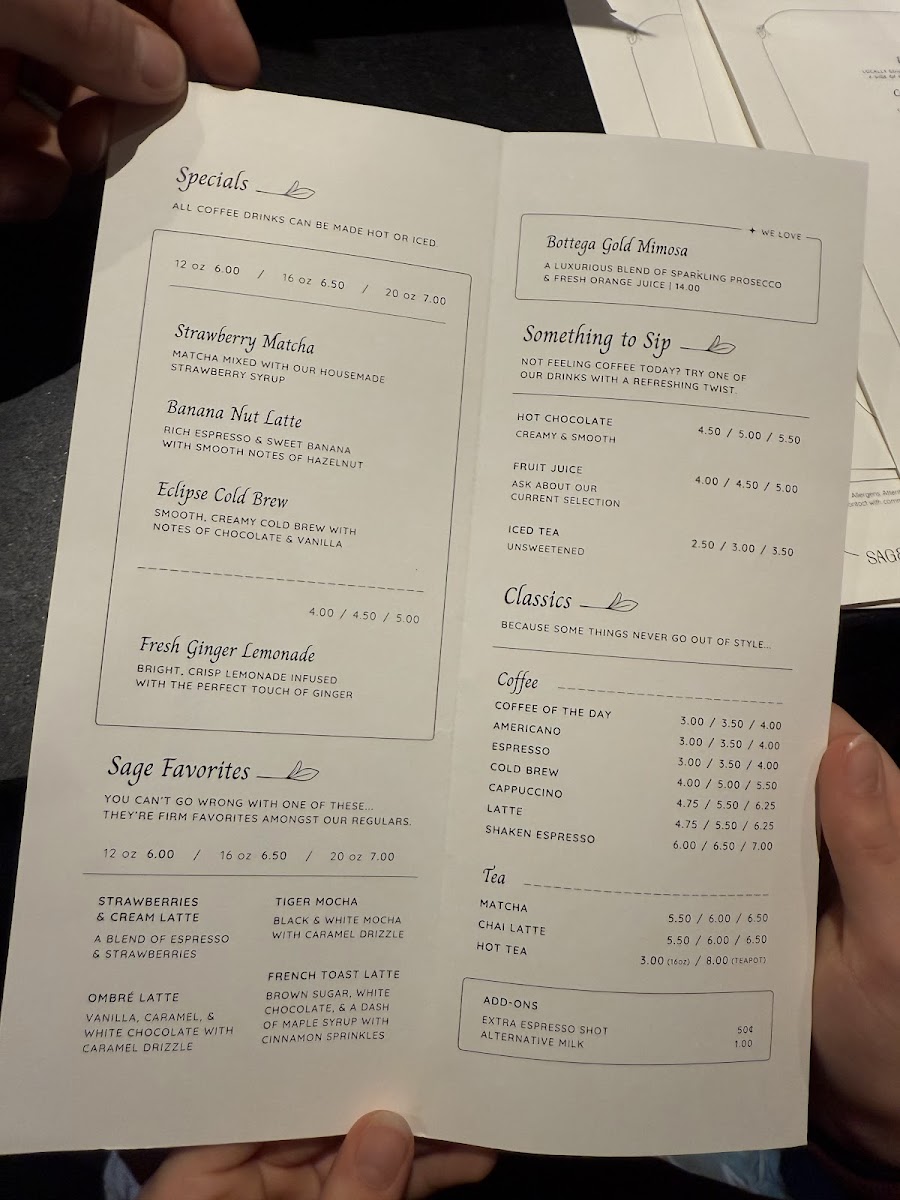 Specials
ALL COFFEE DRINKS CAN BE MADE HOT OR ICED.
12 oz 6.00 / 16 oz 6.50 / 20 oz 7.00
Strawberry Matcha
MATCHA MIXED WITH OUR HOUSEMADE
STRAWBERRY SYRUP
Banana Nut Latte
RICH ESPRESSO & SWEET BANANA
WITH SMOOTH NOTES OF HAZELNUT
Eclipse Cold Brew
SMOOTH, CREAMY COLD BREW WITH
NOTES OF CHOCOLATE & VANILLA
4.00 / 4.50 / 5.00
Fresh Ginger Lemonade
BRIGHT, CRISP LEMONADE INFUSED
WITH THE PERFECT TOUCH OF GINGER
Sage Favorites
YOU CAN'T GO WRONG WITH ONE OF THESE...
THEY'RE FIRM FAVORITES AMONGST OUR REGULARS.
12 oz 6.00 / 16 oz 6.50 / 20 oz 7.00
STRAWBERRIES
& CREAM LATTE
A BLEND OF ESPRESSO
& STRAWBERRIES
OMBRÉ LATTE
VANILLA, CARAMEL, &
WHITE CHOCOLATE WITH
CARAMEL DRIZZLE
TIGER MOCHA
BLACK & WHITE MOCHA
WITH CARAMEL DRIZZLE
FRENCH TOAST LATTE
BROWN SUGAR, WHITE
CHOCOLATE, & A DASH
OF MAPLE SYRUP WITH
CINNAMON SPRINKLES
WE LOVE
Bottega Gold Mimosa
A LUXURIOUS BLEND OF SPARKLING PROSECCO
& FRESH ORANGE JUICE | 14.00
Something to Sip
NOT FEELING COFFEE TODAY? TRY ONE OF
OUR DRINKS WITH A REFRESHING TWIST.
HOT CHOCOLATE 4.50 / 5.00 / 5.50
CREAMY & SMOOTH
FRUIT JUICE 4.00 / 4.50 / 5.00
ASK ABOUT OUR
CURRENT SELECTION
ICED TEA 2.50 / 3.00 / 3.50
UNSWEETENED
Classics
BECAUSE SOME THINGS NEVER GO OUT OF STYLE...
Coffee
COFFEE OF THE DAY 3.00 / 3.50 / 4.00
AMERICANO 3.00 / 3.50 / 4.00
ESPRESSO 3.00 / 3.50 / 4.00
COLD BREW 4.00 / 5.00 / 5.50
CAPPUCCINO 4.75 / 5.50 / 6.25
LATTE 4.75 / 5.50 / 6.25
SHAKEN ESPRESSO 6.00 / 6.50 / 7.00
Tea
MATCHA 5.50 / 6.00 / 6.50
CHAI LATTE 5.50 / 6.00 / 6.50
HOT TEA 3.00 (16oz) / 8.00 (TEAPOT)
ADD-ONS
EXTRA ESPRESSO SHOT 50¢
ALTERNATIVE MILK 1.00